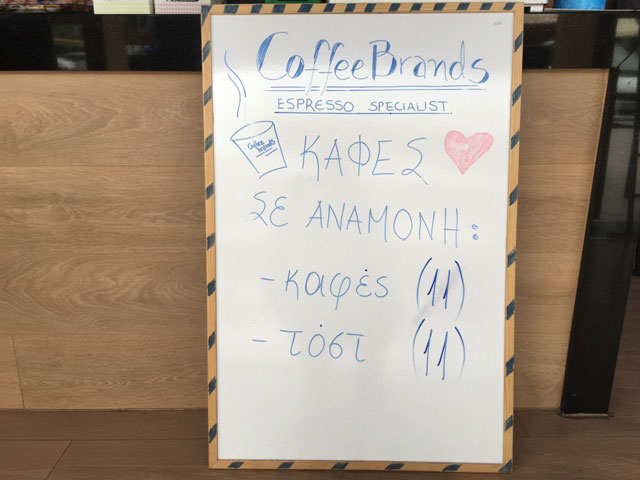 CoffeeBrands
ESPRESSO SPECIALIST
Coffee
Brands
ΚΑΦΕΣ
ΣΕ ΑΝΑΜΟΝΗ:
- καφές (11)
- τόστ (11)